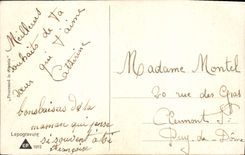 Meilleurs
souhaits de ta
sœur qui t'aime
Catherine
bons baisers de la
maman qui pense
si souvent à toi
Françoise
Madame Montel
20 rue des Gras
Clermont Fd
Puy-de-Dôme
Lapogravure